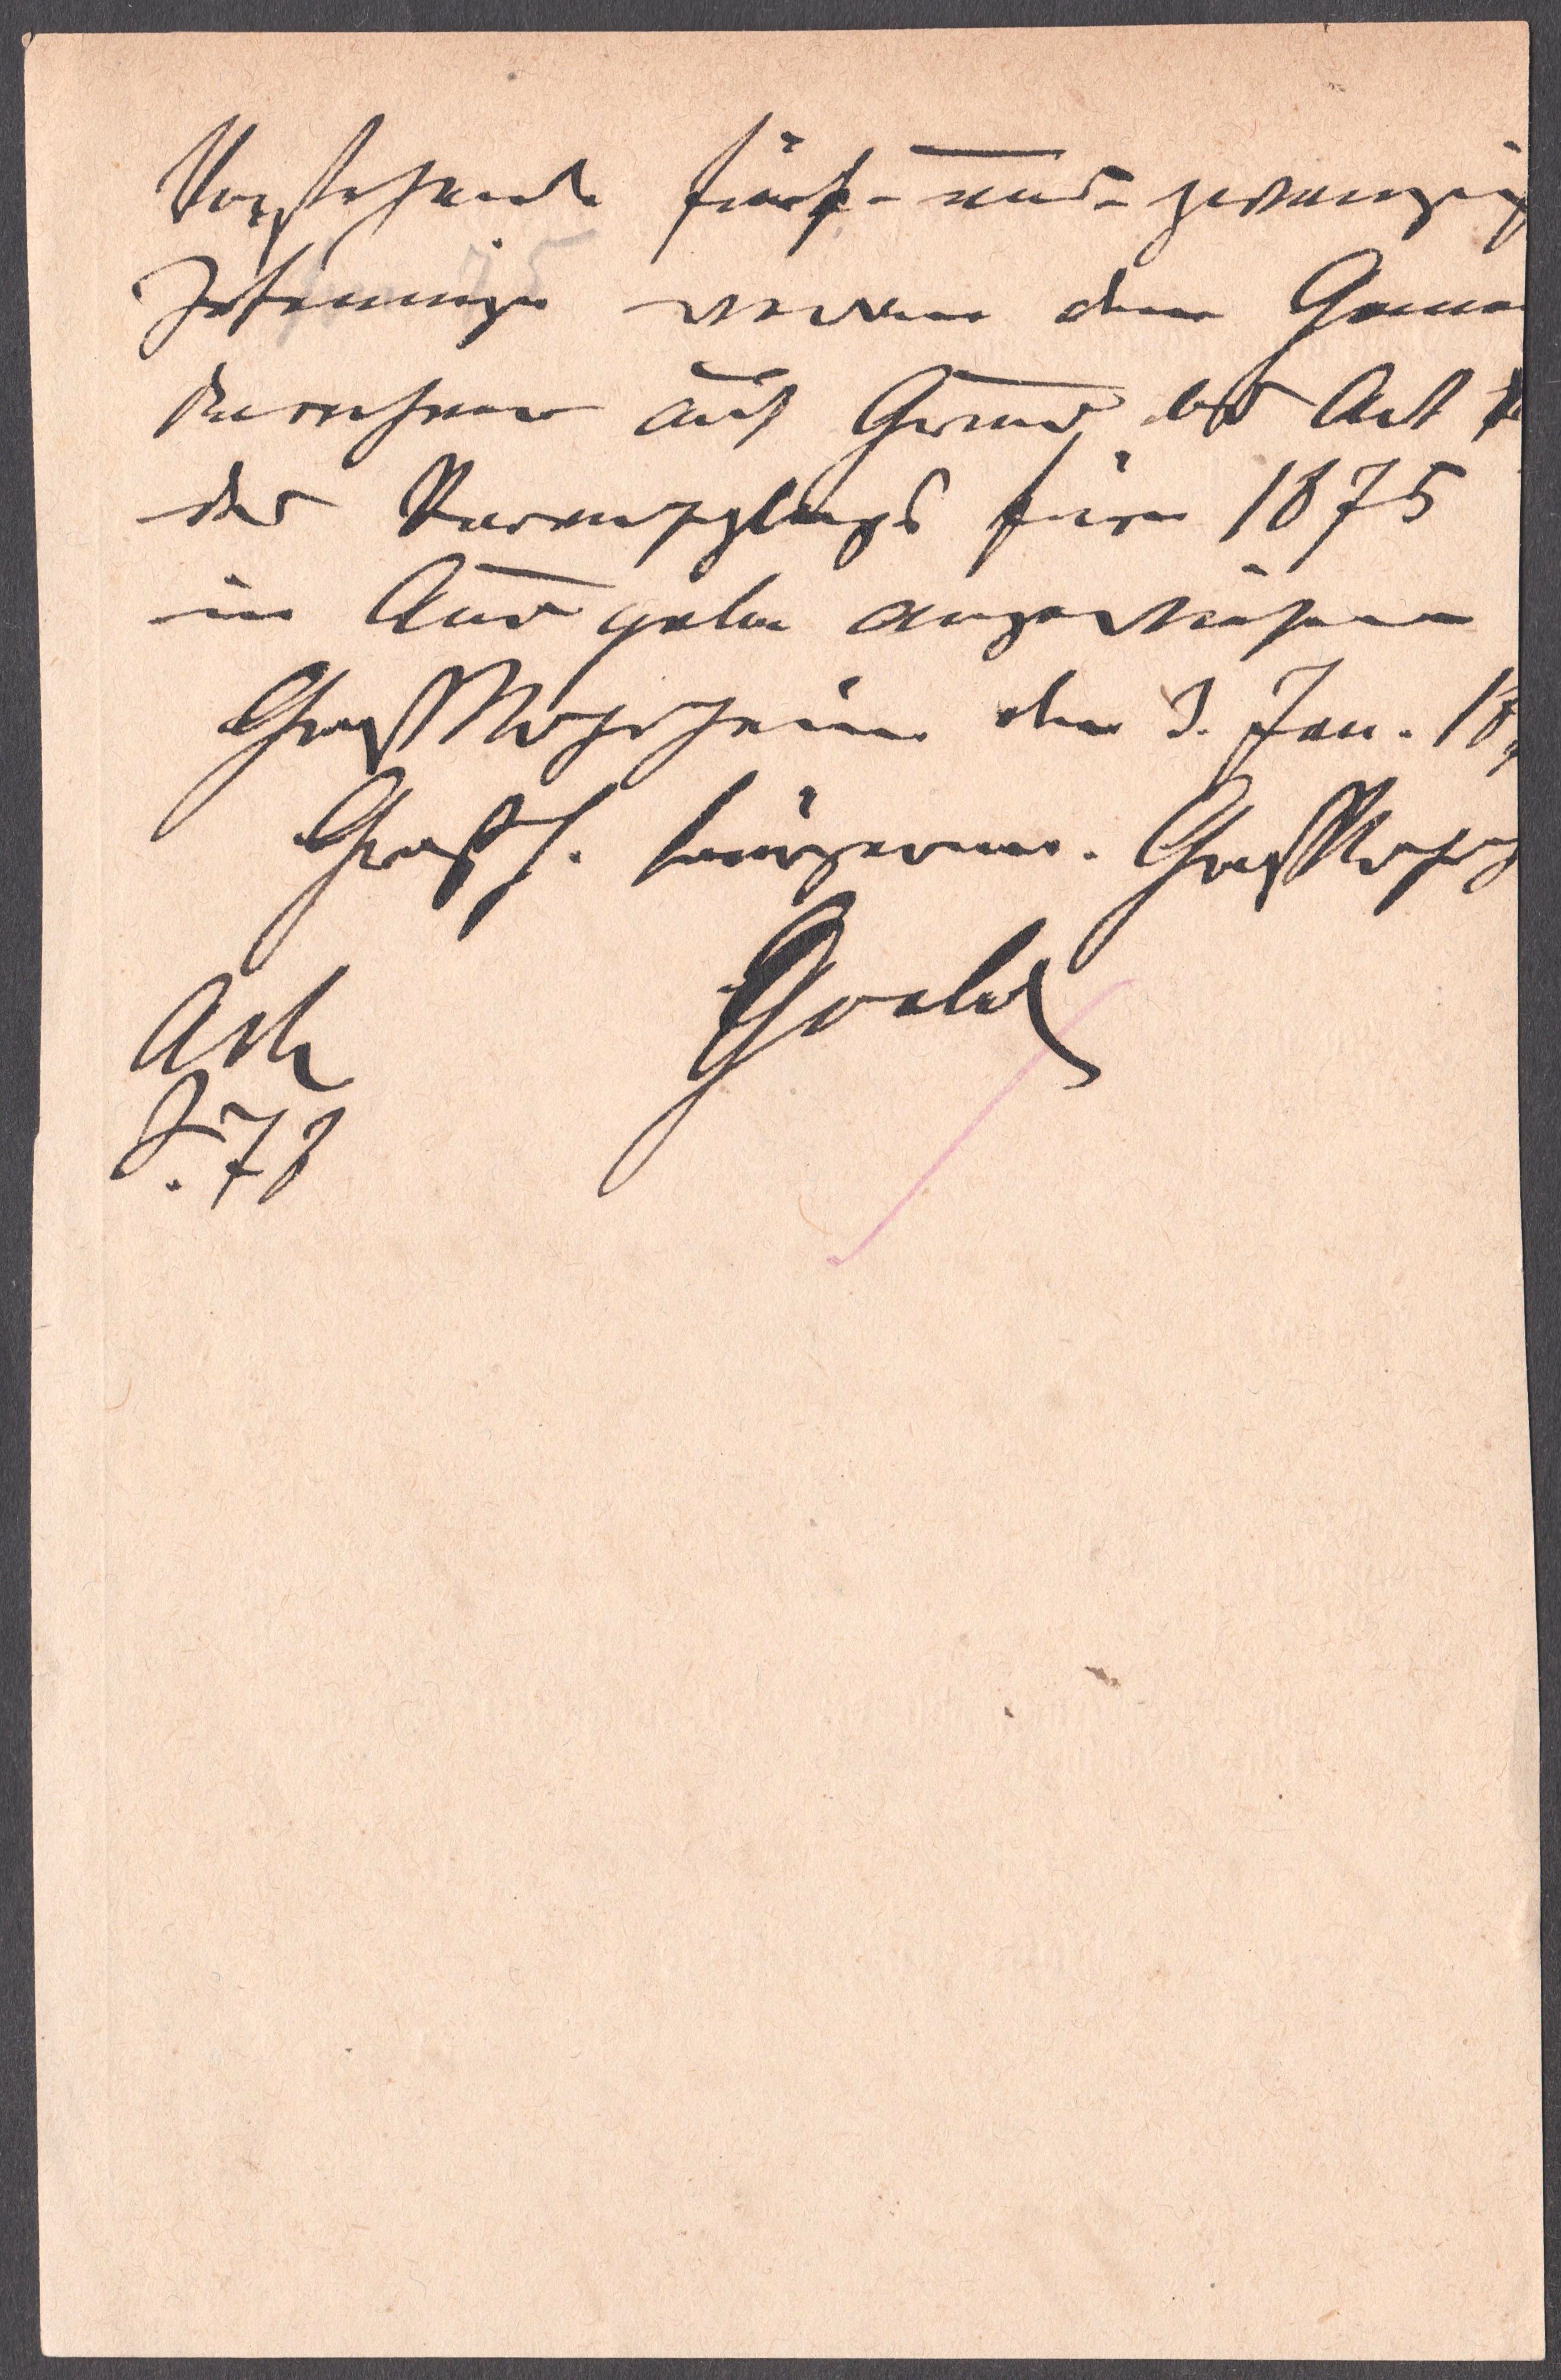 Vorstehende fünf- und- zwanzig
Pfennige werden dem Gemein
Einnehmer auf Grund des Art
des Voranschlags für 1875
in Ausgabe angewiesen
GroßRohrheim den 3. Jan. 18
Großh. Bürgerm. GroßRohrh
Art
S. 73